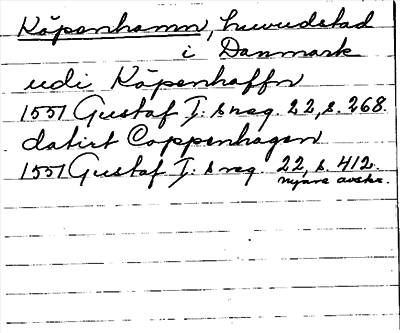 Köpenhamn, huvudstad
i Danmark
udi Köpenhaffn
1551 Gustaf I: s reg. 22, s. 268.
datirt Coppenhagen
1551 Gustaf I: s reg. 22, s. 412.
nyare avskr.